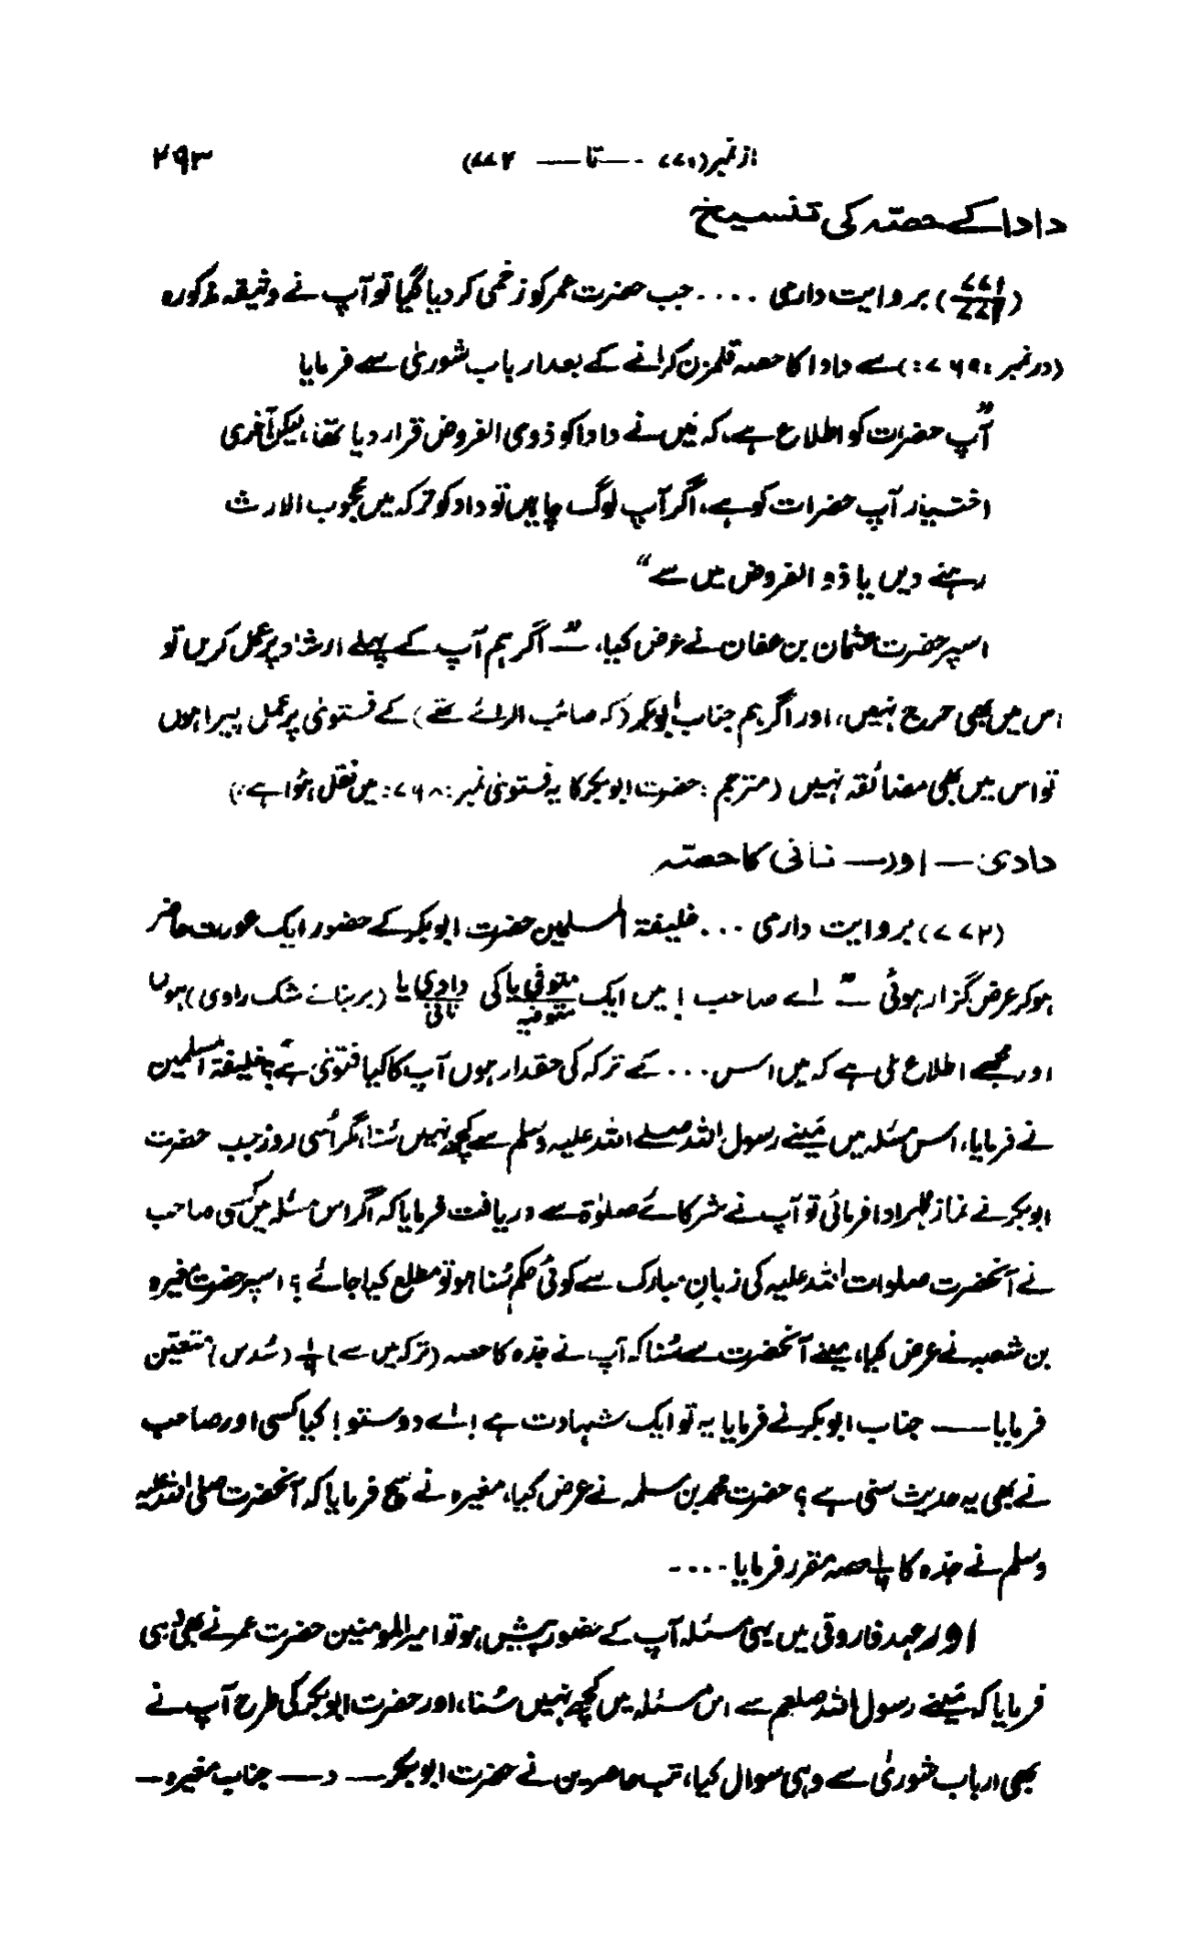 از نمبر (۷۷۱ -—تا— ۷۷۲) ۲۹۳
دادا کے حصّہ کی تنسیخ
(۷۷۱) بروایت دارمی .... جب حضرت عمر کو زخمی کر دیا گیا تو آپ نے وثیقہ مذکورہ
(در نمبر :۷۶۹:) سے دادا کا حصہ قلمزن کرانے کے بعد ارباب شوریٰ سے فرمایا
”آپ حضرات کو اطلاع ہے، کہ مَیں نے دادا کو ذوی الفروض قرار دیا تھا، لیکن آخری
اختیار آپ حضرات کو ہے، اگر آپ لوگ چاہیں تو داد کو ترکہ میں محجوب الارث
رہنے دیں یا ذو الفروض میں سے“
اسپر حضرت عثمان بن عفان نے عرض کیا، — ”اگر ہم آپ کے پہلے ارشاد پر عمل کریں تو
اس میں بھی حرج نہیں، اور اگر ہم جناب ابوبکر (کہ صائب الرائے تھے) کے فتویٰ پر عمل پیرا ہوں
تو اس میں بھی مضائقہ نہیں (مترجم : حضرت ابوبکر کا یہ فتویٰ نمبر :۷۶۸: میں نقل ہُوا ہے)
دادی — اور — نانی کا حصّہ
(۷۷۲) بروایت دارمی ... خلیفۃ المسلمین حضرت ابوبکر کے حضور ایک عورت حاضر
ہو کر عرض گزار ہوئی — ”اے صاحب! میں ایک متوفی یا متوفیہ کی دادی یا نانی (بربنائے شک راوی) ہوں
اور مجھے اطلاع ملی ہے کہ میں اس ... کے ترکہ کی حقدار ہوں آپ کا کیا فتویٰ ہے؟ خلیفۃ المسلمین
نے فرمایا، اس مسئلہ میں مَینے رسول اللہ صلے اللہ علیہ وسلم سے کچھ نہیں سُنا، مگر اُسی روز جب حضرت
ابوبکر نے نماز ظہر ادا فرمائی تو آپ نے شرکائے صلوٰۃ سے دریافت فرمایا کہ اگر اس مسئلہ میں کسی صاحب
نے آنحضرت صلوات اللہ علیہ کی زبانِ مبارک سے کوئی حکم سُنا ہو تو مطلع کیا جائے؟ اسپر حضرت مغیرہ
بن شعبہ نے عرض کیا، مینے آنحضرت سے سُنا کہ آپ نے جدّہ کا حصہ (ترکہ میں سے) ۱/۶ (سُدس) متعیّن
فرمایا — جناب ابوبکر نے فرمایا یہ تو ایک شہادت ہے! اے دوستو! کیا کسی اور صاحب
نے بھی یہ حدیث سنی ہے؟ حضرت محمد بن مسلمہ نے عرض کیا، مغیرہ نے سچ فرمایا کہ آنحضرت صلی اللہ علیہ
وسلم نے جدّہ کا ۱/۶ حصہ مقرر فرمایا ....
اور عہد فاروقی میں یہی مسئلہ آپ کے حضور پیش ہو تو امیر المومنین حضرت عمر نے بھی یہی
فرمایا کہ مَینے رسول اللہ صلعم سے اس مسئلہ میں کچھ نہیں سُنا، اور حضرت ابوبکر کی طرح آپ نے
بھی ارباب شوریٰ سے وہی سوال کیا، تب حاضرین نے حضرت ابوبکر — و — جناب مغیرہ —